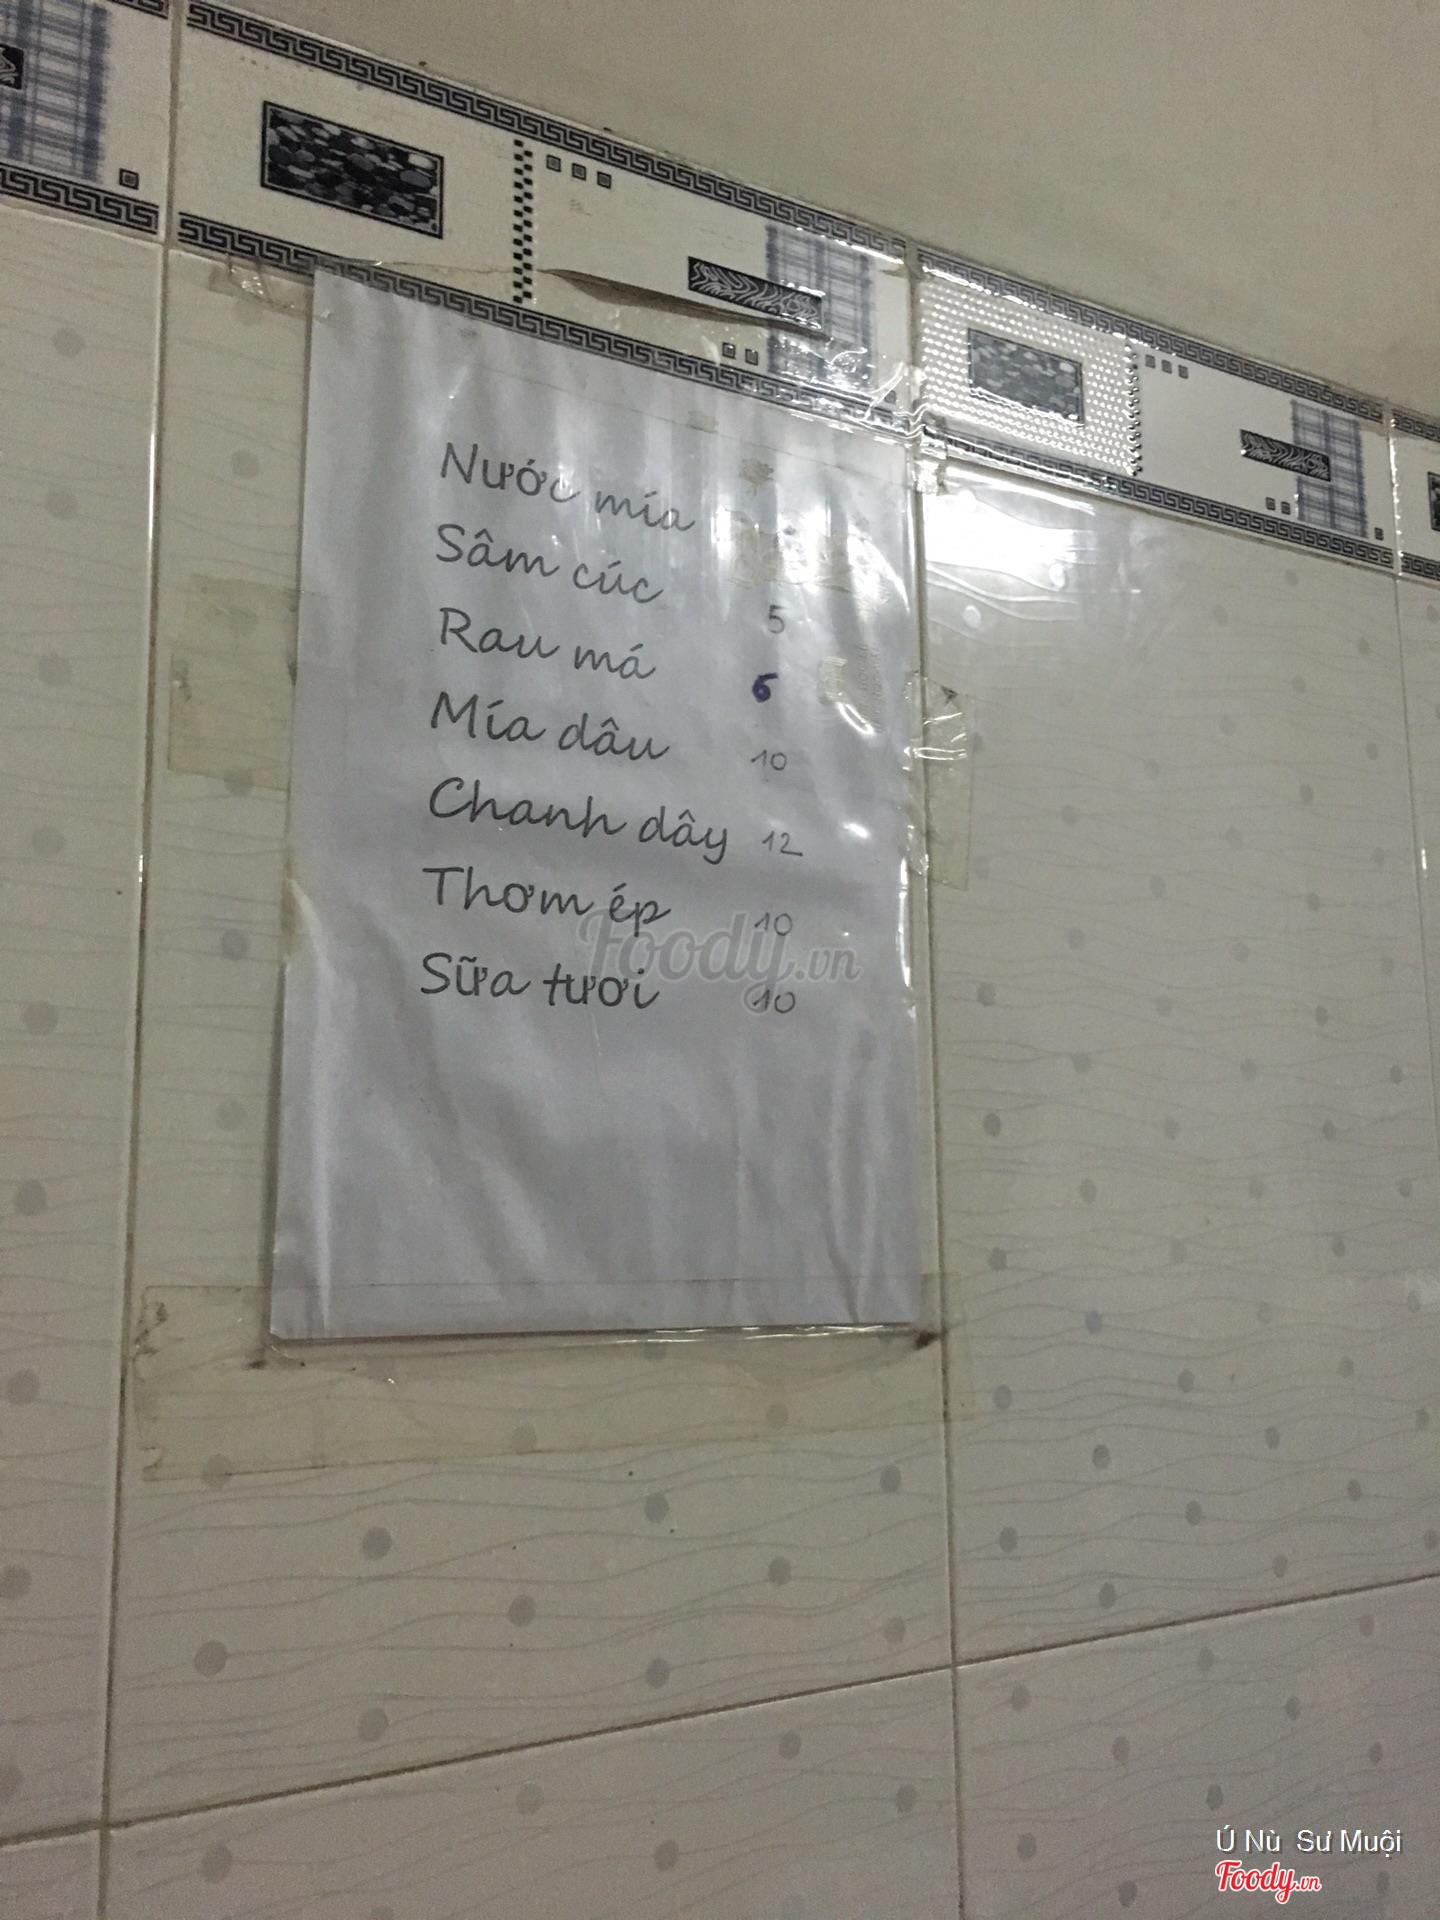 Nước mía
Sâm cúc 5
Rau má 6
Mía dâu 10
Chanh dây 12
Thơm ép 10
Sữa tươi 10
Foody.vn
Ú Nù Sư Muội
Foody.vn